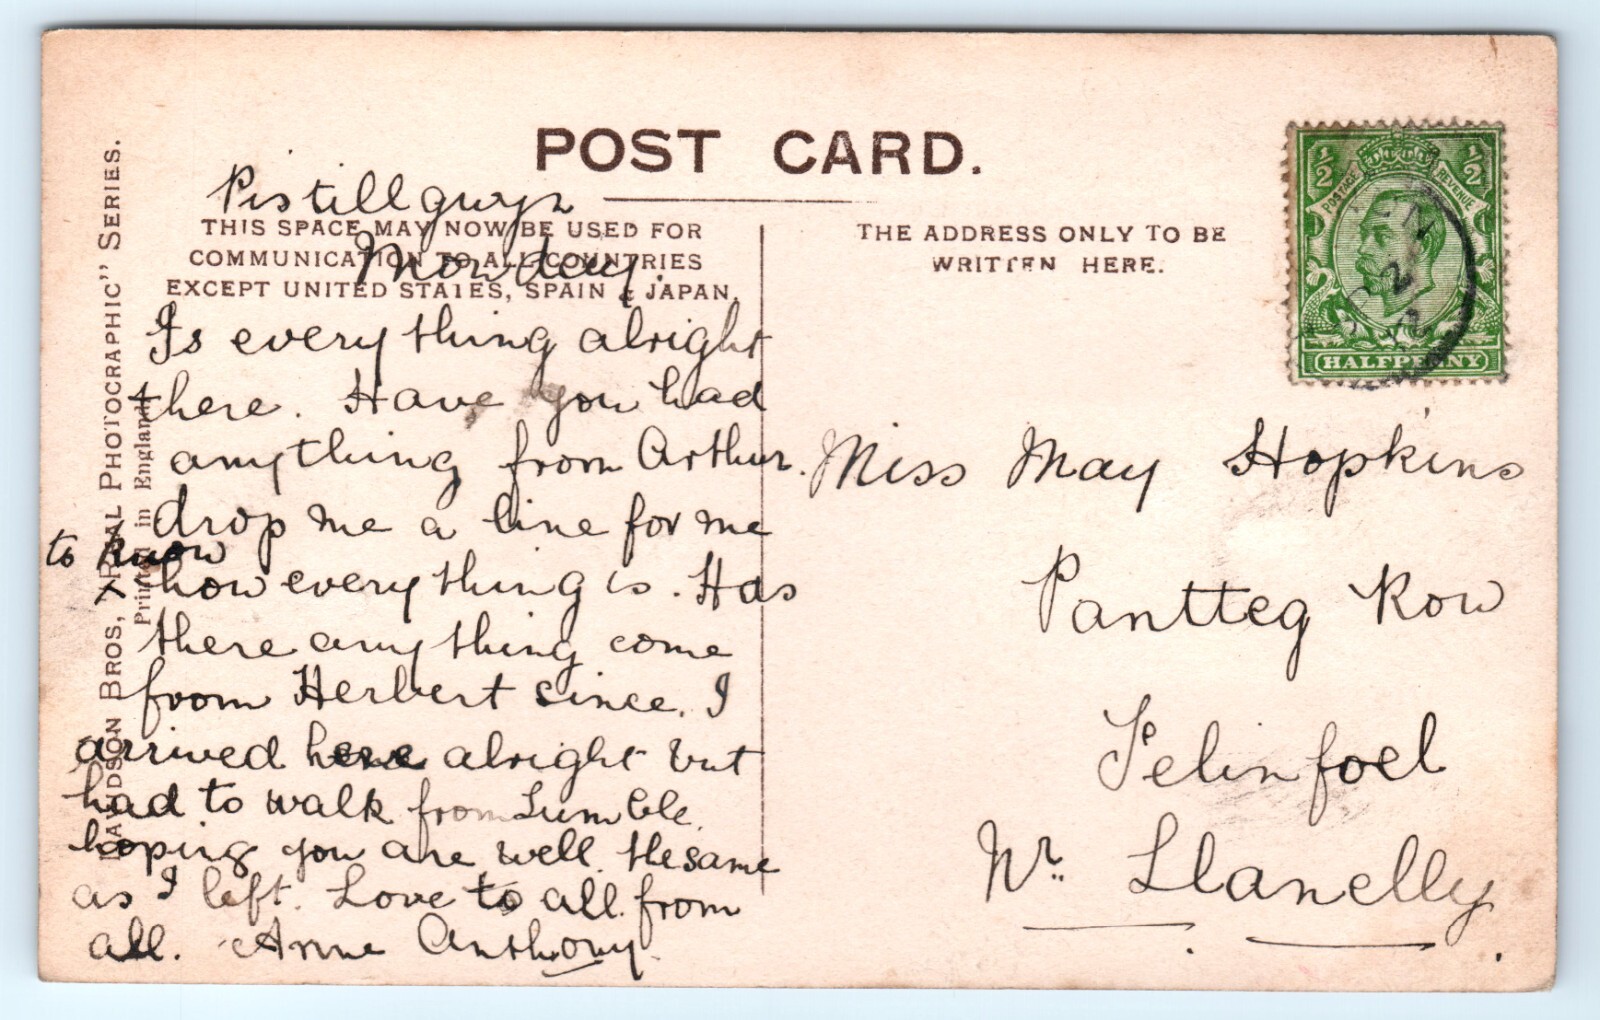 POST CARD.
Pistillgwyn
THIS SPACE MAY NOW BE USED FOR
COMMUNICATION TO ALL COUNTRIES
EXCEPT UNITED STATES, SPAIN & JAPAN.
Monday.
Is everything alright
there. Have you had
anything from Arthur.
drop me a line for me
to know
how everything is. Has
there anything come
from Herbert since. I
arrived here alright but
had to walk from Tumble.
hoping you are well the same
as I left. Love to all from
all. Anne Anthony.
DAVIDSON BROS, "REAL PHOTOGRAPHIC" SERIES.
Printed in England.
THE ADDRESS ONLY TO BE
WRITTEN HERE.
½ ½
POSTAGE REVENUE
HALFPENNY
Miss May Hopkins
Pantteg Row
Felinfoel
Nr. Llanelly.